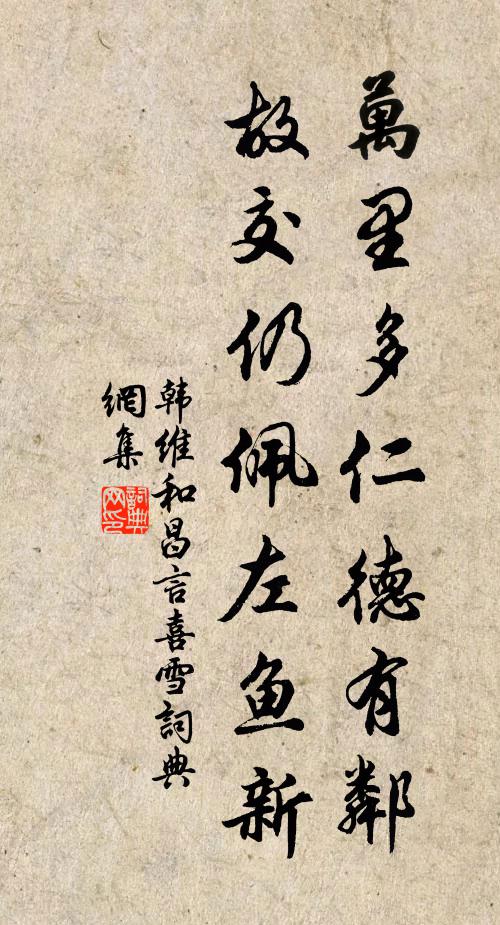 萬里多仁德有鄰
故交仍佩左鱼新
韩維和昌言喜雪詞典
網集
詞典
网印